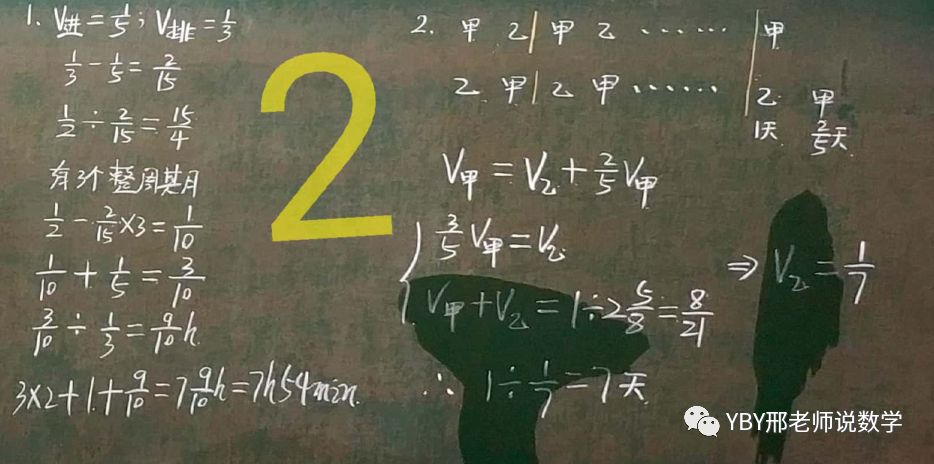 1. V进=1/5; V排=1/3
1/3-1/5=2/15
1/2÷2/15=15/4
有3个整周期
1/2-2/15×3=1/10
1/10+1/5=3/10
3/10÷1/3=9/10h
3×2+1+9/10=7 9/10h=7h54min.
2
2. 甲 乙|甲 乙 ……|甲
乙 甲|乙 甲 ……|乙 甲
1天 2/5天
V甲=V乙+2/5V甲
3/5V甲=V乙
V甲+V乙=1÷2 5/8=8/21
⇒V乙=1/7
∴ 1÷1/7=7天
YBY邢老师说数学